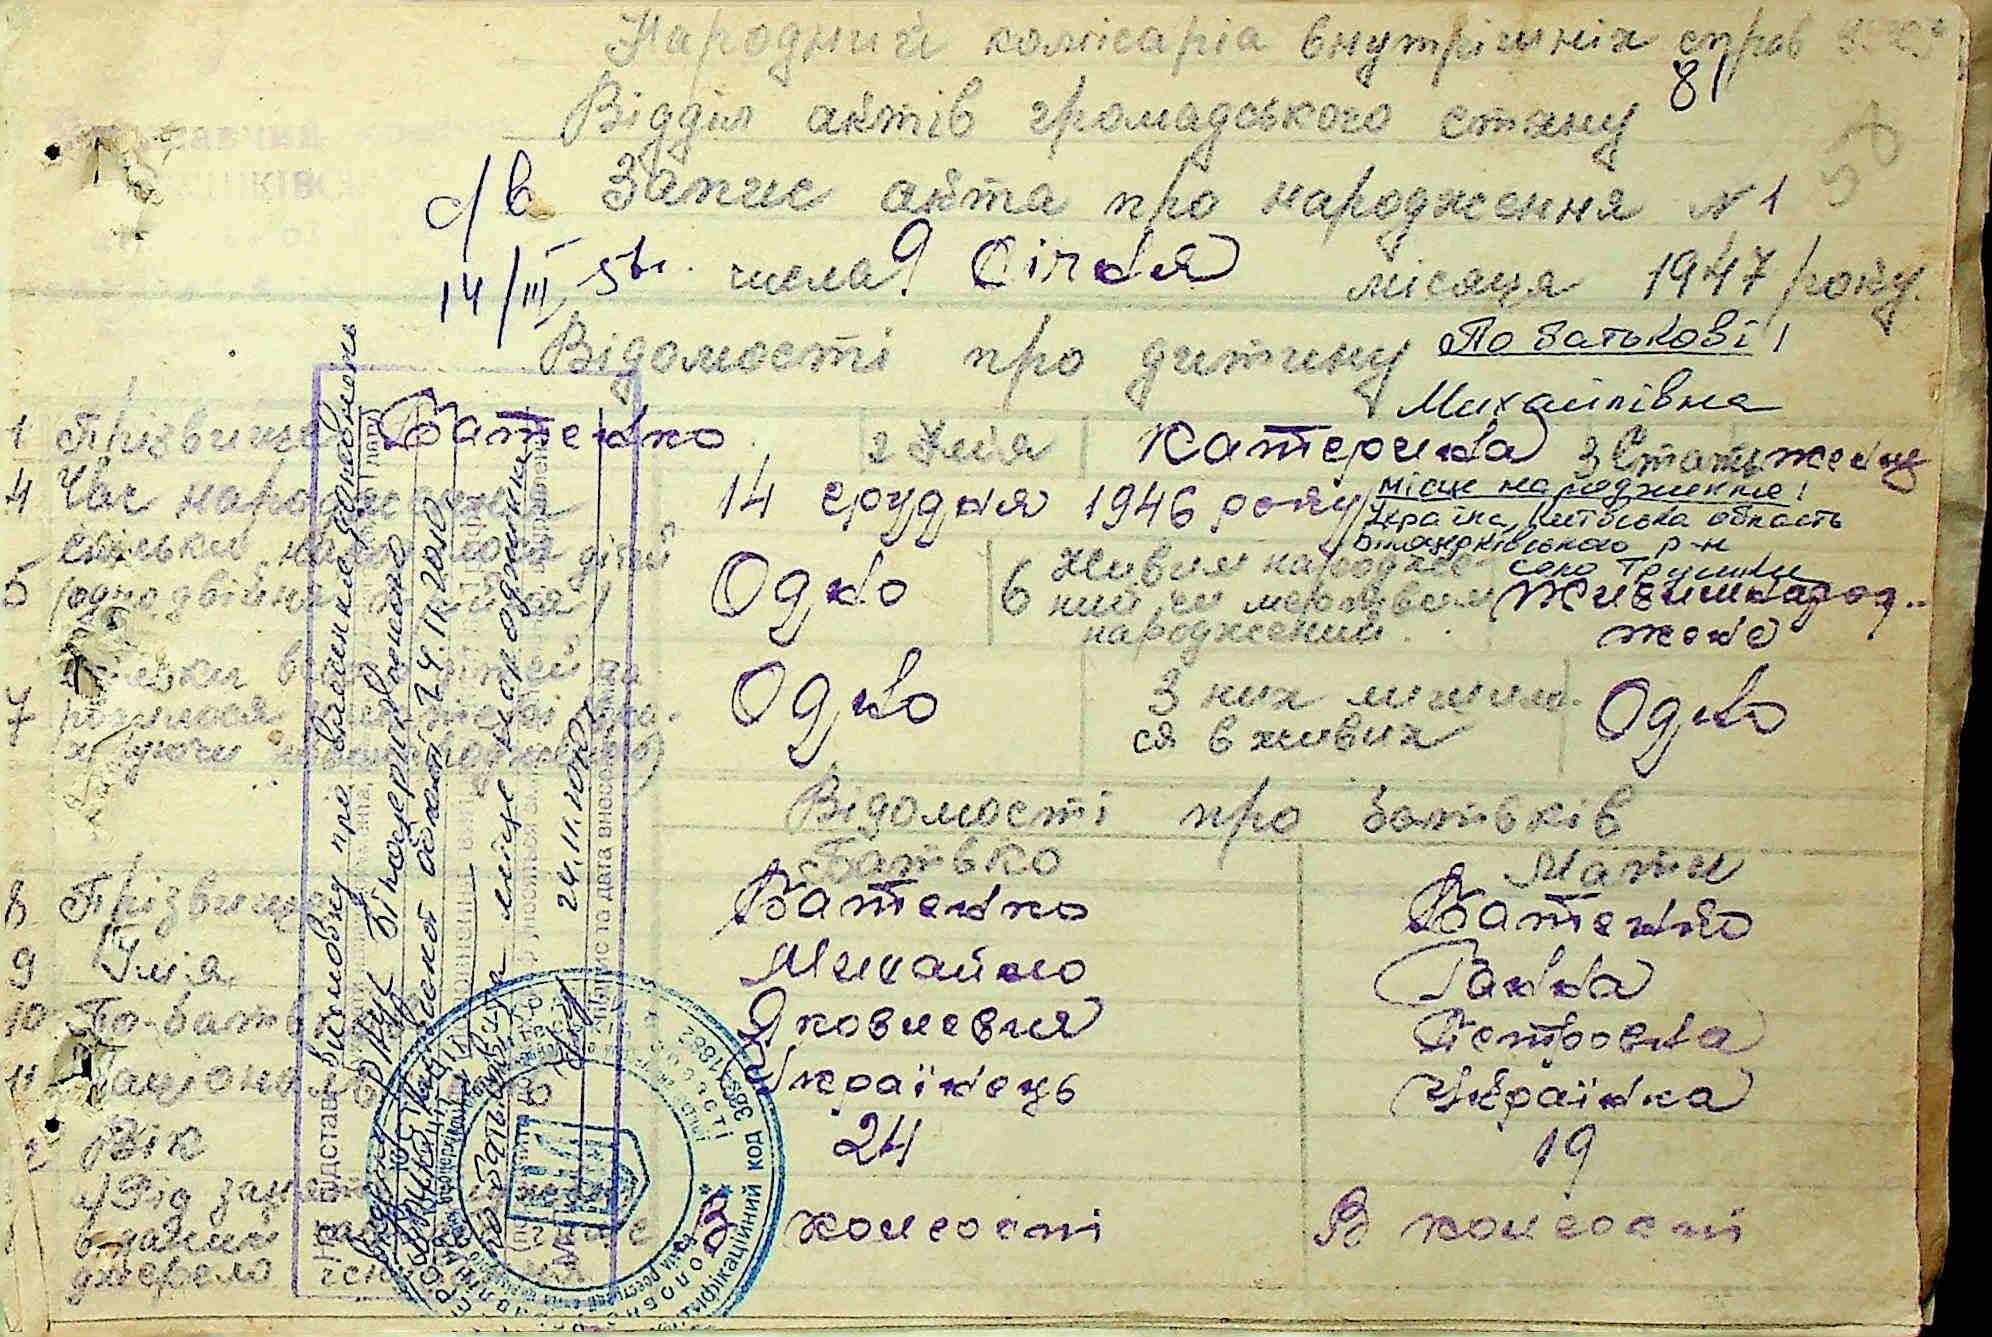 Народний комісаріа внутрішніх справ
81
Відділ актів громадського стану
50
с/в Запис акта про народження №1
14/III 51г. числа 9 Січня місяця 1947 року.
Відомості про дитину По батькові!
Михайлівна
1 Прізвище Ватенко 2 Імя Катерина 3 Стать жену
4 Час народження 14 грудня 1946 року
Місце народження!
Україна, Київська область
Білоцерківського р-н
село Трушки
5 Скільки народилося дітей
(одно двійня трійня) Одно 6 Живим народже-
ний чи мертвим
народжений. Живимнарод-
жене
7 Скільки всього дітей на-
родилося Одно З них лишило-
ся в живих Одно
Відомості про батьків
Батько Мати
8 Прізвище Ватенко Ватенко
9 Імя Михайло Ганна
10 По-батькові Яковлевич Петровна
11 Національність Українець Українка
Вік 24 19
а) Рід занять
в даний час
джерело існування В колгоспі В колгоспі
На підставі висновку про внесення доповнень
24.11.2010
по батькові та місце народження
24.11.2010
ідентифікаційний код